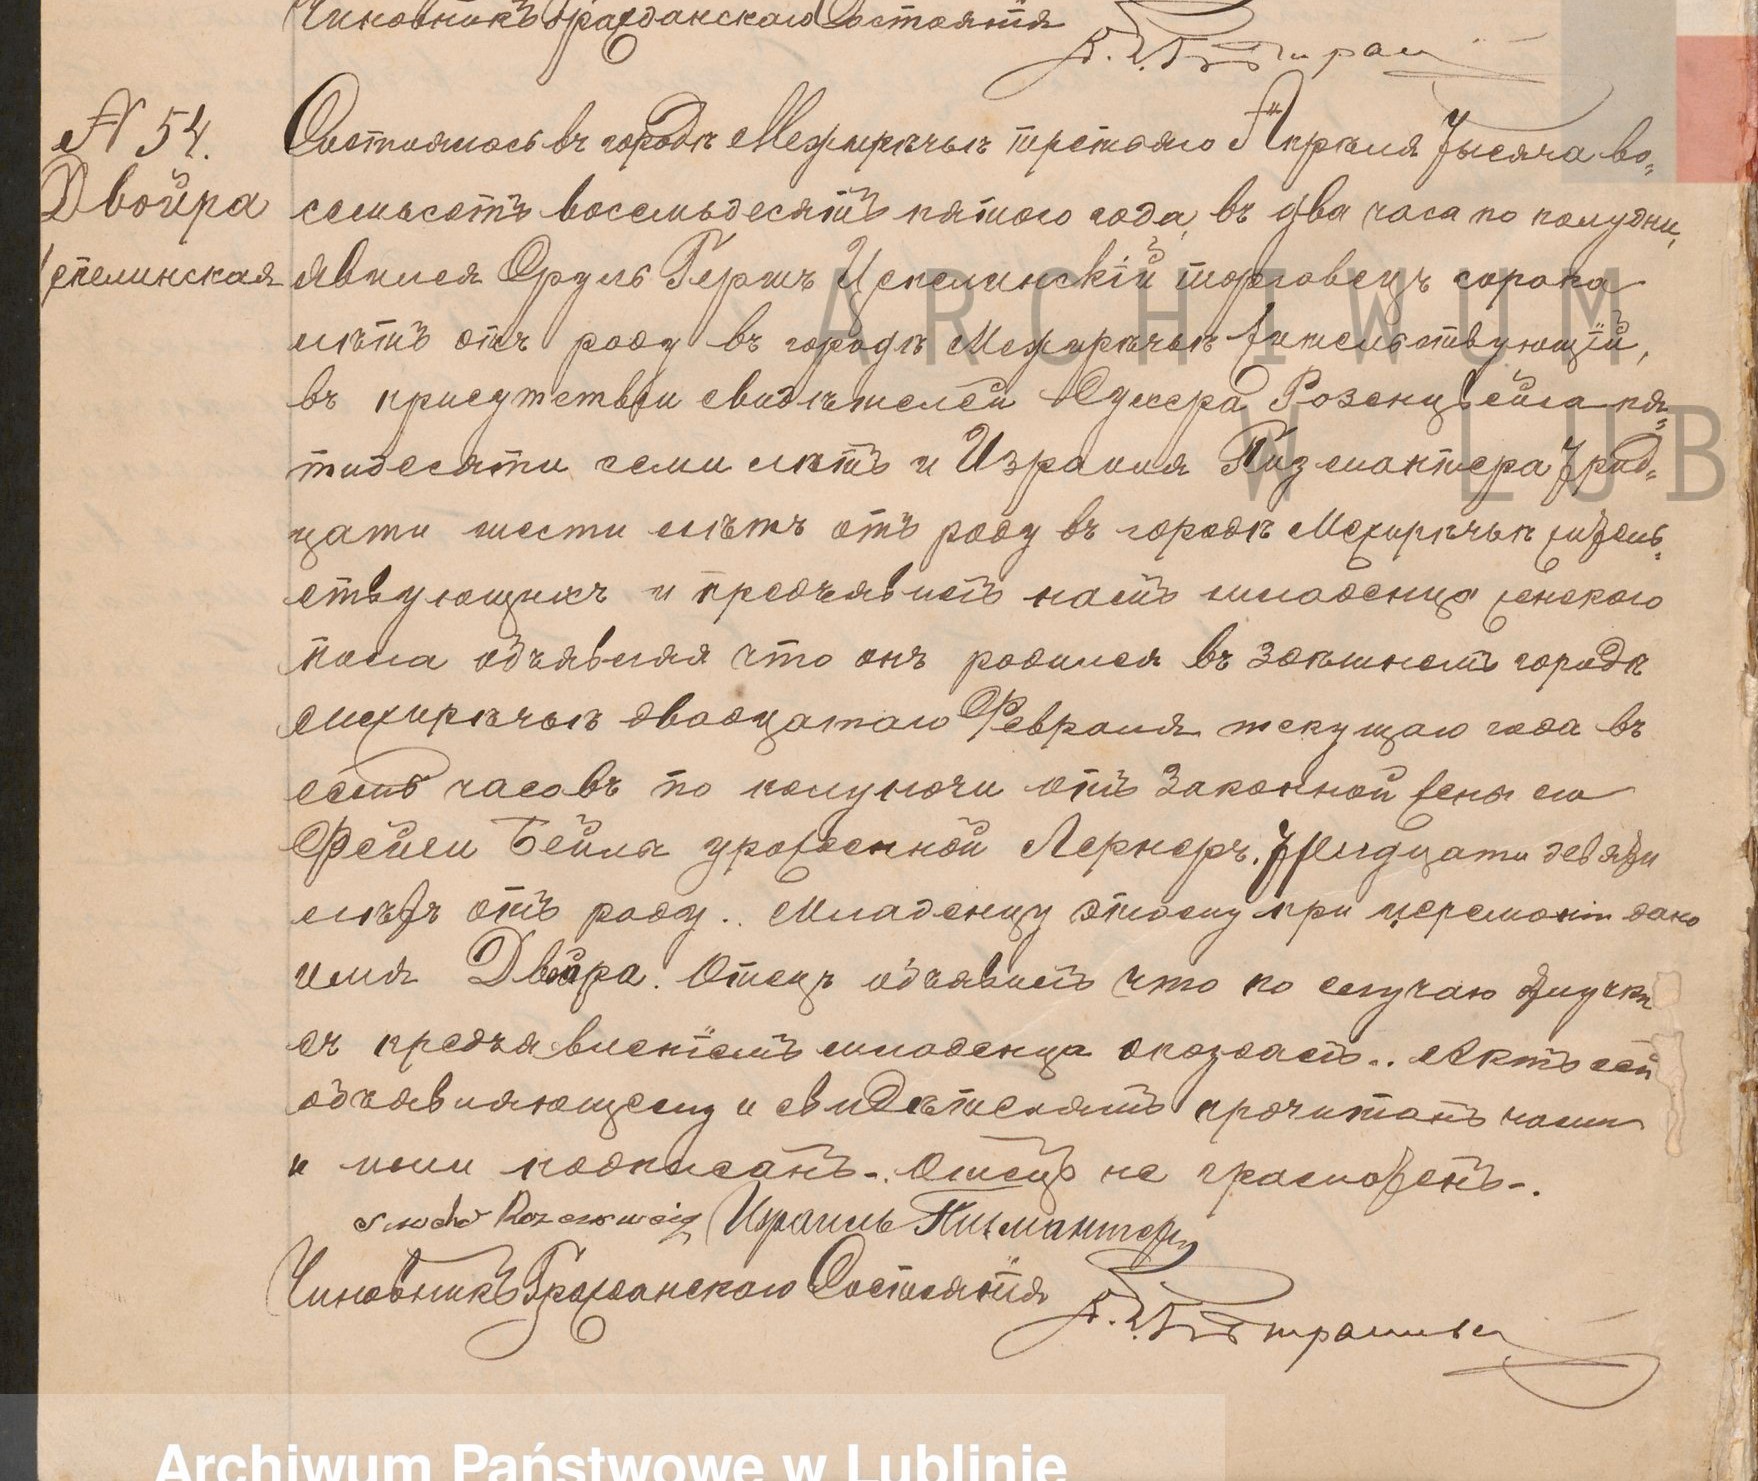 Чиновникъ Гражданскаго Состоянія
№ 54.
Двойра
Цепелинская
Состоялось въ городѣ Межирѣчьѣ третьяго Апрѣля тысяча во=
семьсотъ восемьдесятъ пятого года, въ два часа по полудни,
явился Сруль Гершъ Цепелинскій торговецъ сорока
лѣтъ отъ роду въ городѣ Межирѣчьѣ жительствующій,
въ присутствіи свидѣтелей Розенцвейга пя=
тидесяти семи лѣтъ и Израиля Пизмантера трид=
цати шести лѣтъ отъ роду въ городѣ Межирѣчьѣ житель=
ствующихъ и предъявилъ намъ младенца женскаго
пола объявляя что онъ родился въ здѣшнемъ городѣ
Межирѣчьѣ двадцатаго Февраля текущаго года въ
семь часовъ по полуночи отъ законной жены его
Фейги Бейлы урожденной Лернеръ. тридцати девяти
лѣтъ отъ роду. Младенцу этому при церемоніи дано
имя Двойра. Отецъ объявилъ что по случаю отлучки
съ предъявленіемъ младенца опоздалъ. Актъ сей
объявляющему и свидѣтелямъ прочитанъ нами
и ими подписанъ. Отецъ не грамотенъ.
Rozencwaig Израиль Пизмантеръ
Чиновникъ Гражданскаго Состоянія
ARCHIWUM
W LUB
Archiwum Państwowe w Lublinie